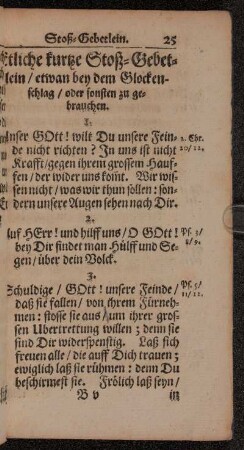 Stoß-Gebetlein. 25
Etliche kurtze Stoß-Gebet-
lein / etwan bey dem Glocken-
schlag / oder sonsten zu ge-
brauchen.
1.
Unser GOtt! wilt Du unsere Fein- 2. Chr.
de nicht richten? In uns ist nicht 20/12.
Krafft / gegen ihrem grossem Hauf-
fen / der wider uns kom̃t. Wir wis-
sen nicht / was wir thun sollen: son-
dern unsere Augen sehen nach Dir.
2.
Auf HErr! und hilff uns / O GOtt! Ps. 3/
bey Dir findet man Hülff und Se- 8/9.
gen / über dein Volck.
3.
Schuldige / GOtt! unsere Feinde / Ps. 5/
daß sie fallen / von ihrem Fürneh- 11/12.
men: stosse sie aus / um ihrer gros-
sen Ubertrettung willen; denn sie
sind Dir widerspenstig. Laß sich
freuen alle / die auff Dich trauen;
ewiglich laß sie rühmen: denn Du
beschirmest sie. Frölich laß seyn /
B v